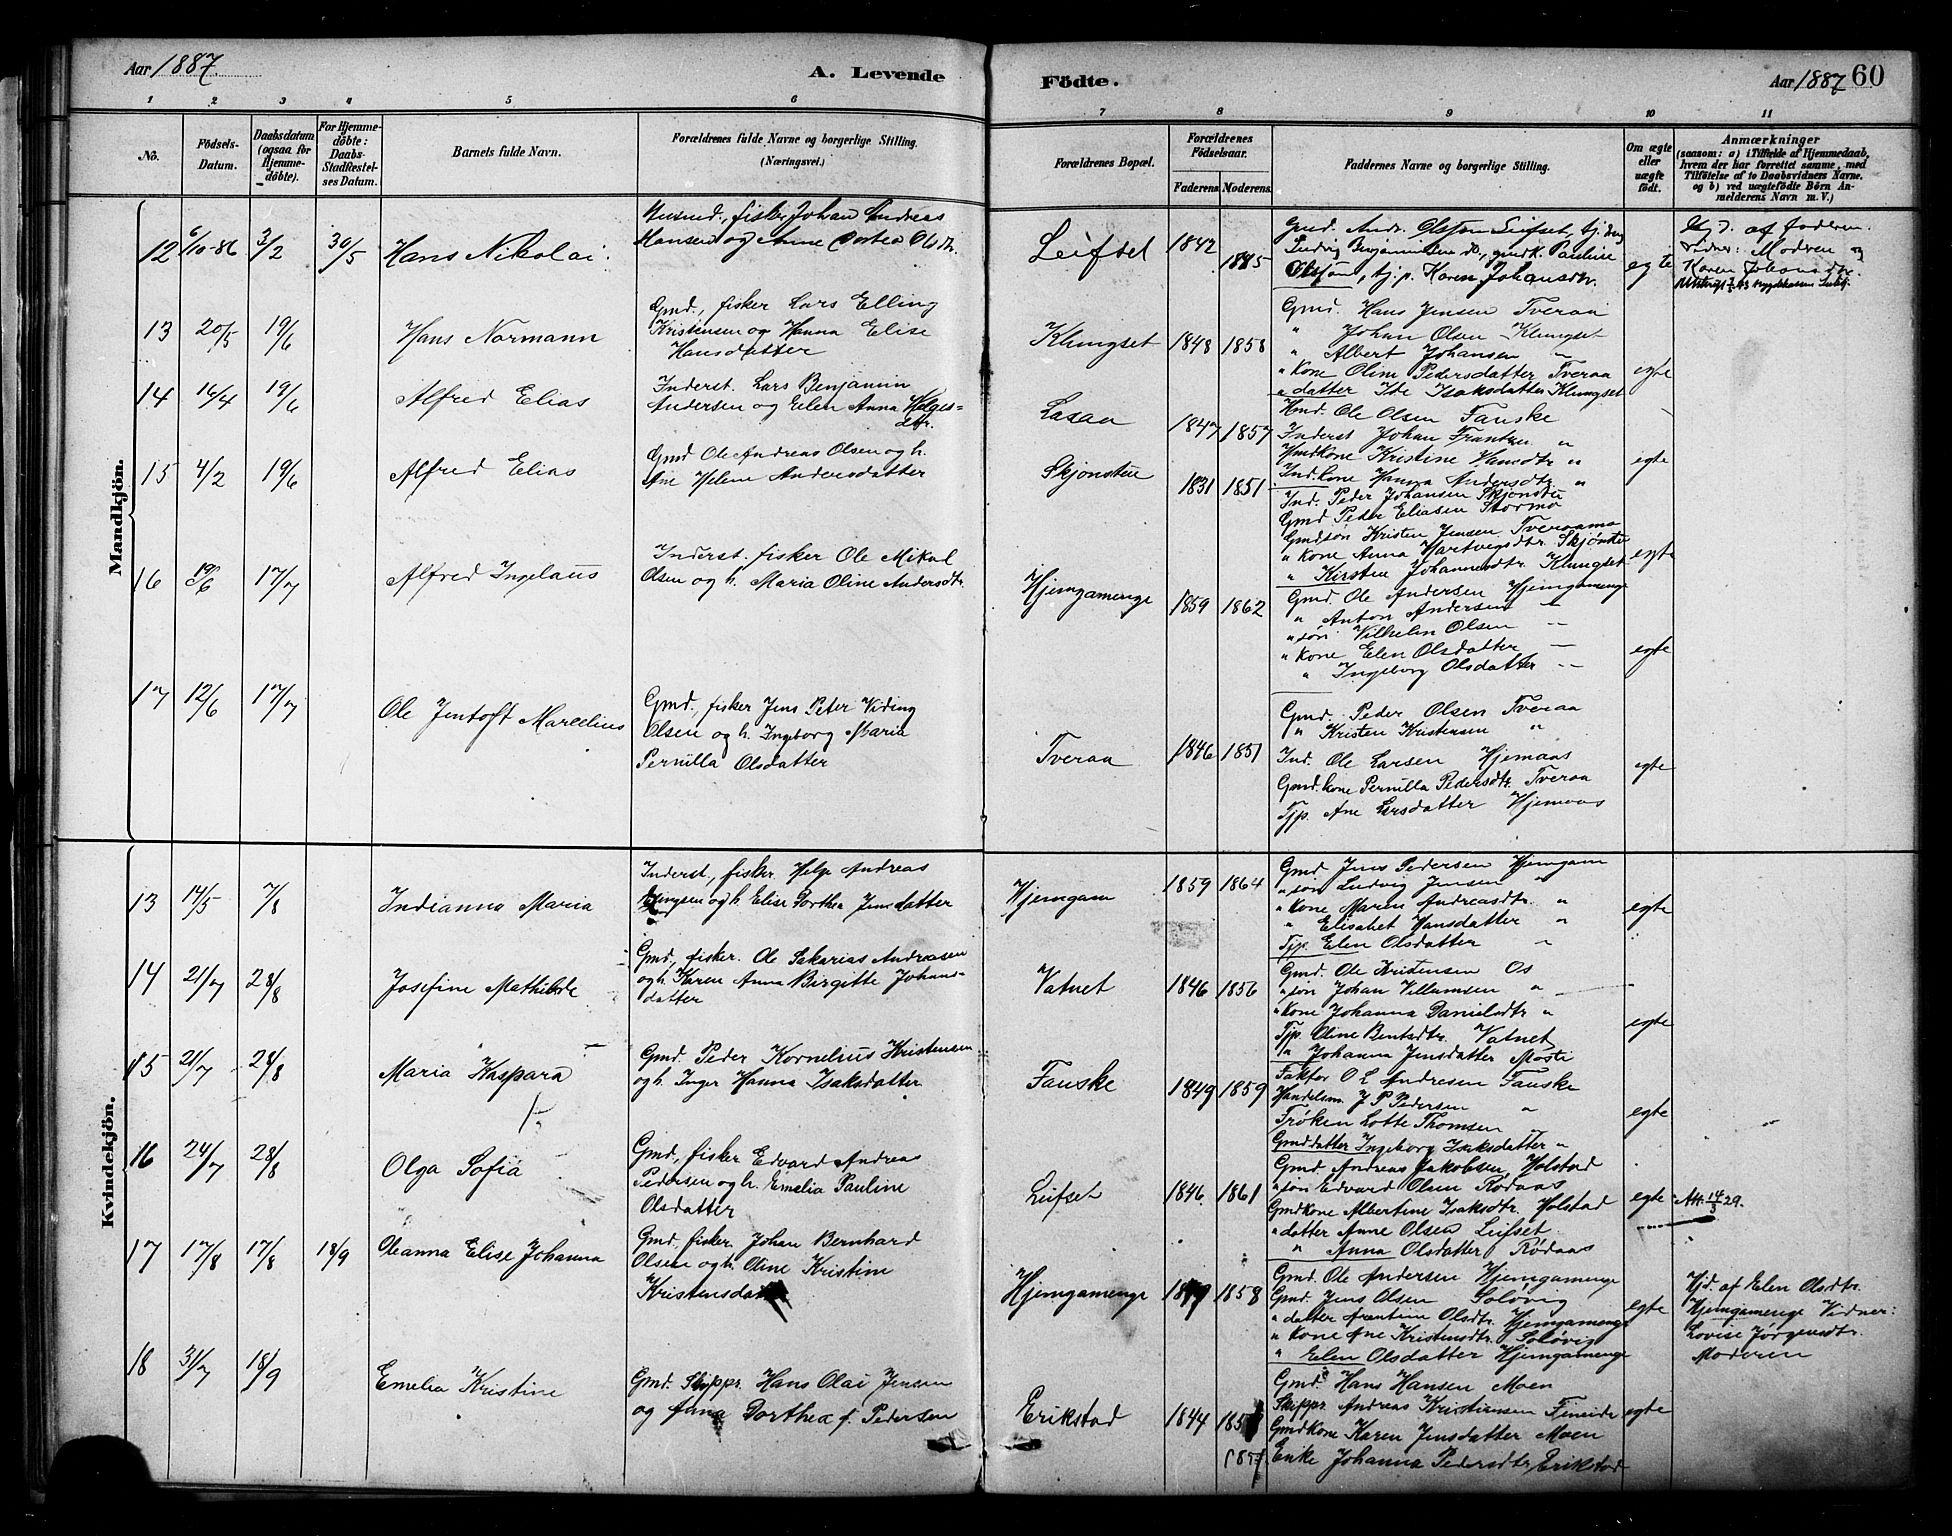 Aar 1887.
A. Levende
Födte.
Aar 1887 60
1 2 3 4 5 6 7 8 9 10 11
No.
Födsels-
Datum.
Daabsdatum
(ogsaa for
Hjemme-
döbte).
For Hjemme-
döbte:
Daabs-
Stadfæstel-
ses Datum.
Barnets fulde Navn.
Forældrenes fulde Navne og borgerlige Stilling.
(Næringsvei.)
Forældrenes Bopæl.
Forældrenes
Födselsaar.
Faderens. Moderens.
Faddernes Navne og borgerlige Stilling.
Om ægte
eller
uægte
födt.
Anmærkninger
(saasom: a) i Tilfælde af Hjemmedaab,
hvem der har forrettet samme, med
Tilföielse af to Daabsvidners Navne.
og b) ved uægtefödte Börn An-
melderens Navn m. V.)
Mandkjön.
12 6/10-86 3/2 30/5 Hans Nikolai
fisker Johan Andreas
Hansen og Anne Dortea Olsdtr.
Leifset 1842 1845
Gmd. Andr. Olsen Leifset,
Ludvig Benjaminsen do., gmdk. Pauline
Olsen, tj.p. Karen Johansdtr.
egte
Hjd. af Faderen.
Vidner: Moderen og
Karen Johansdtr.
13 20/5 19/6 Hans Normann
Gmd., fisker Lars Elling
Kristensen og Hanna Elise
Hansdatter
Klungset 1848 1858
Gmd. Hans Jensen Tveraa
" Johan Olsen Klungset
" Albert Johansen "
" Kone Oline Pedersdatter Tveraa
" datter Ide Isaksdatter Klungset
egte
14 16/4 19/6 Alfred Elias
Inderst. Lars Benjamin
Andersen og Elen Anna Helges-
dtr.
Lasaa 1847 1857
Hmd. Ole Olsen Fauske
Inderst Johan Frantzen "
Hmdkone Kristine Hansdtr "
Ind. kone Hanna Andersdtr. "
egte
15 4/2 19/6 Alfred Elias
Gmd Ole Andreas Olsen og h.
Ane Helene Andersdatter
Skjonstue 1831 1851
Ind. Peder Johansen Skjonstu
Gmd Peter Eliasen Stormo
Gmdsön Kristen Jensen Tveraamo
" Kone Anna Hartvigsdtr. Skjönstu
" Kirsten Johannesdtr. Klungset
egte
16 19/6 17/7 Alfred Ingelaus
Inderst. fisker Ole Mikal
Olsen og h. Maria Oline Andersdtr.
Hjemgamenge 1859 1862
Gmd. Ole Andersen Hjemgamenge
" Anton Andersen —
" sön Vilhelm Olsen —
" Kone Elen Olsdatter —
" Ingeborg Olsdatter —
egte
17 12/6 17/7 Ole Jentoft Marcelius
Gmd., fisker Jens Peter Viding
Olsen og h. Ingeborg Maria
Pernilla Olsdatter
Tveraa 1846 1851
Gmd. Peder Olsen Tveraa
" Kristen Kristensen "
Ind. Ole Larsen Hjemaas
Gmd. kone Pernilla Pedersdtr. Tveraa
Tjp. Ane Larsdatter Hjemaas
egte
Kvindekjön.
13 14/5 7/8 Indianna Maria
Inderst., fisker Help Andreas
og h. Elise Dorthea Jensdatter
Hjemgam 1859 1864
Gmd Jens Pedersen Hjemgam
" sön Ludvig Jensen "
" Kone Maren Andreasdtr. "
" Elisabet Hansdatter "
Tjp. Elen Olsdatter "
egte
14 21/7 28/8 Josefine Mathilde
Gmd, fisker. Ole Sakarias Andreasen
og h. Karen Anna Birgitte Johans-
datter
Vatnet 1846 1856
Gmd. Ole Kristensen Os
" sön Johan Villumsen "
" Kone Johanna Danielsdtr "
Tjp. Oline Bentsdtr. Vatnet
" Johanna Jensdatter Mosti
egte
15 21/7 28/8 Maria Kaspara
Gmd. Peder Kornelius Kristensen
og h. Inger Hanna Isaksdatter
Fauske 1849 1859
Faktor O L Andresen Fauske
Handelsm. J P Pedersen "
Fröken Lotte Thomsen "
Gmd datter Ingeborg Isaksdatter "
egte
16 24/7 28/8 Olga Sofia
Gmd., fisker Edvard Andreas
Pedersen og h. Emelia Pauline
Olsdatter
Leifset 1846 1861
Gmd. Andreas Jakobsen Holstad
" sön Edvard Olsen Rödaas
Gmdkone Albertine Isaksdtr. Holstad
" datter Anne Olsen Leifset
" Anna Olsdatter Rödaas
egte
Att. 14/3 29.
17 17/8 17/8 18/9 Oleanna Elise Johanna
Gmd. fisker Johan Bernhard
Olsen og h. Oline Kristine
Kristensdatter
Hjemgamenge 1858
Gmd. Ole Andersen Hjemgamenge
Gmd. Jens Olsen Solövig
" datter Arntine Olsdtr. Hjemgamenge
" Kone Ane Kristensdtr. Solövig
" Elen Olsdatter Hjemgamenge
egte
Hjd. af Elen Olsdtr.
Hjemgamenge Vidner:
Lovise Jörgensdtr.
Moderen
18 31/7 18/9 Emelia Kristine
Gmd. Skippr. Hans Olai Jensen
og Anna Dorthea f. Pedersen
Erikstad 1844
Gmd. Hans Hansen Moen
Skippr. Andreas Kristensen Fineide
Gmdkone Karen Jensdatter Moen
Enke Johanna Pedersdtr. Erikstad
egte